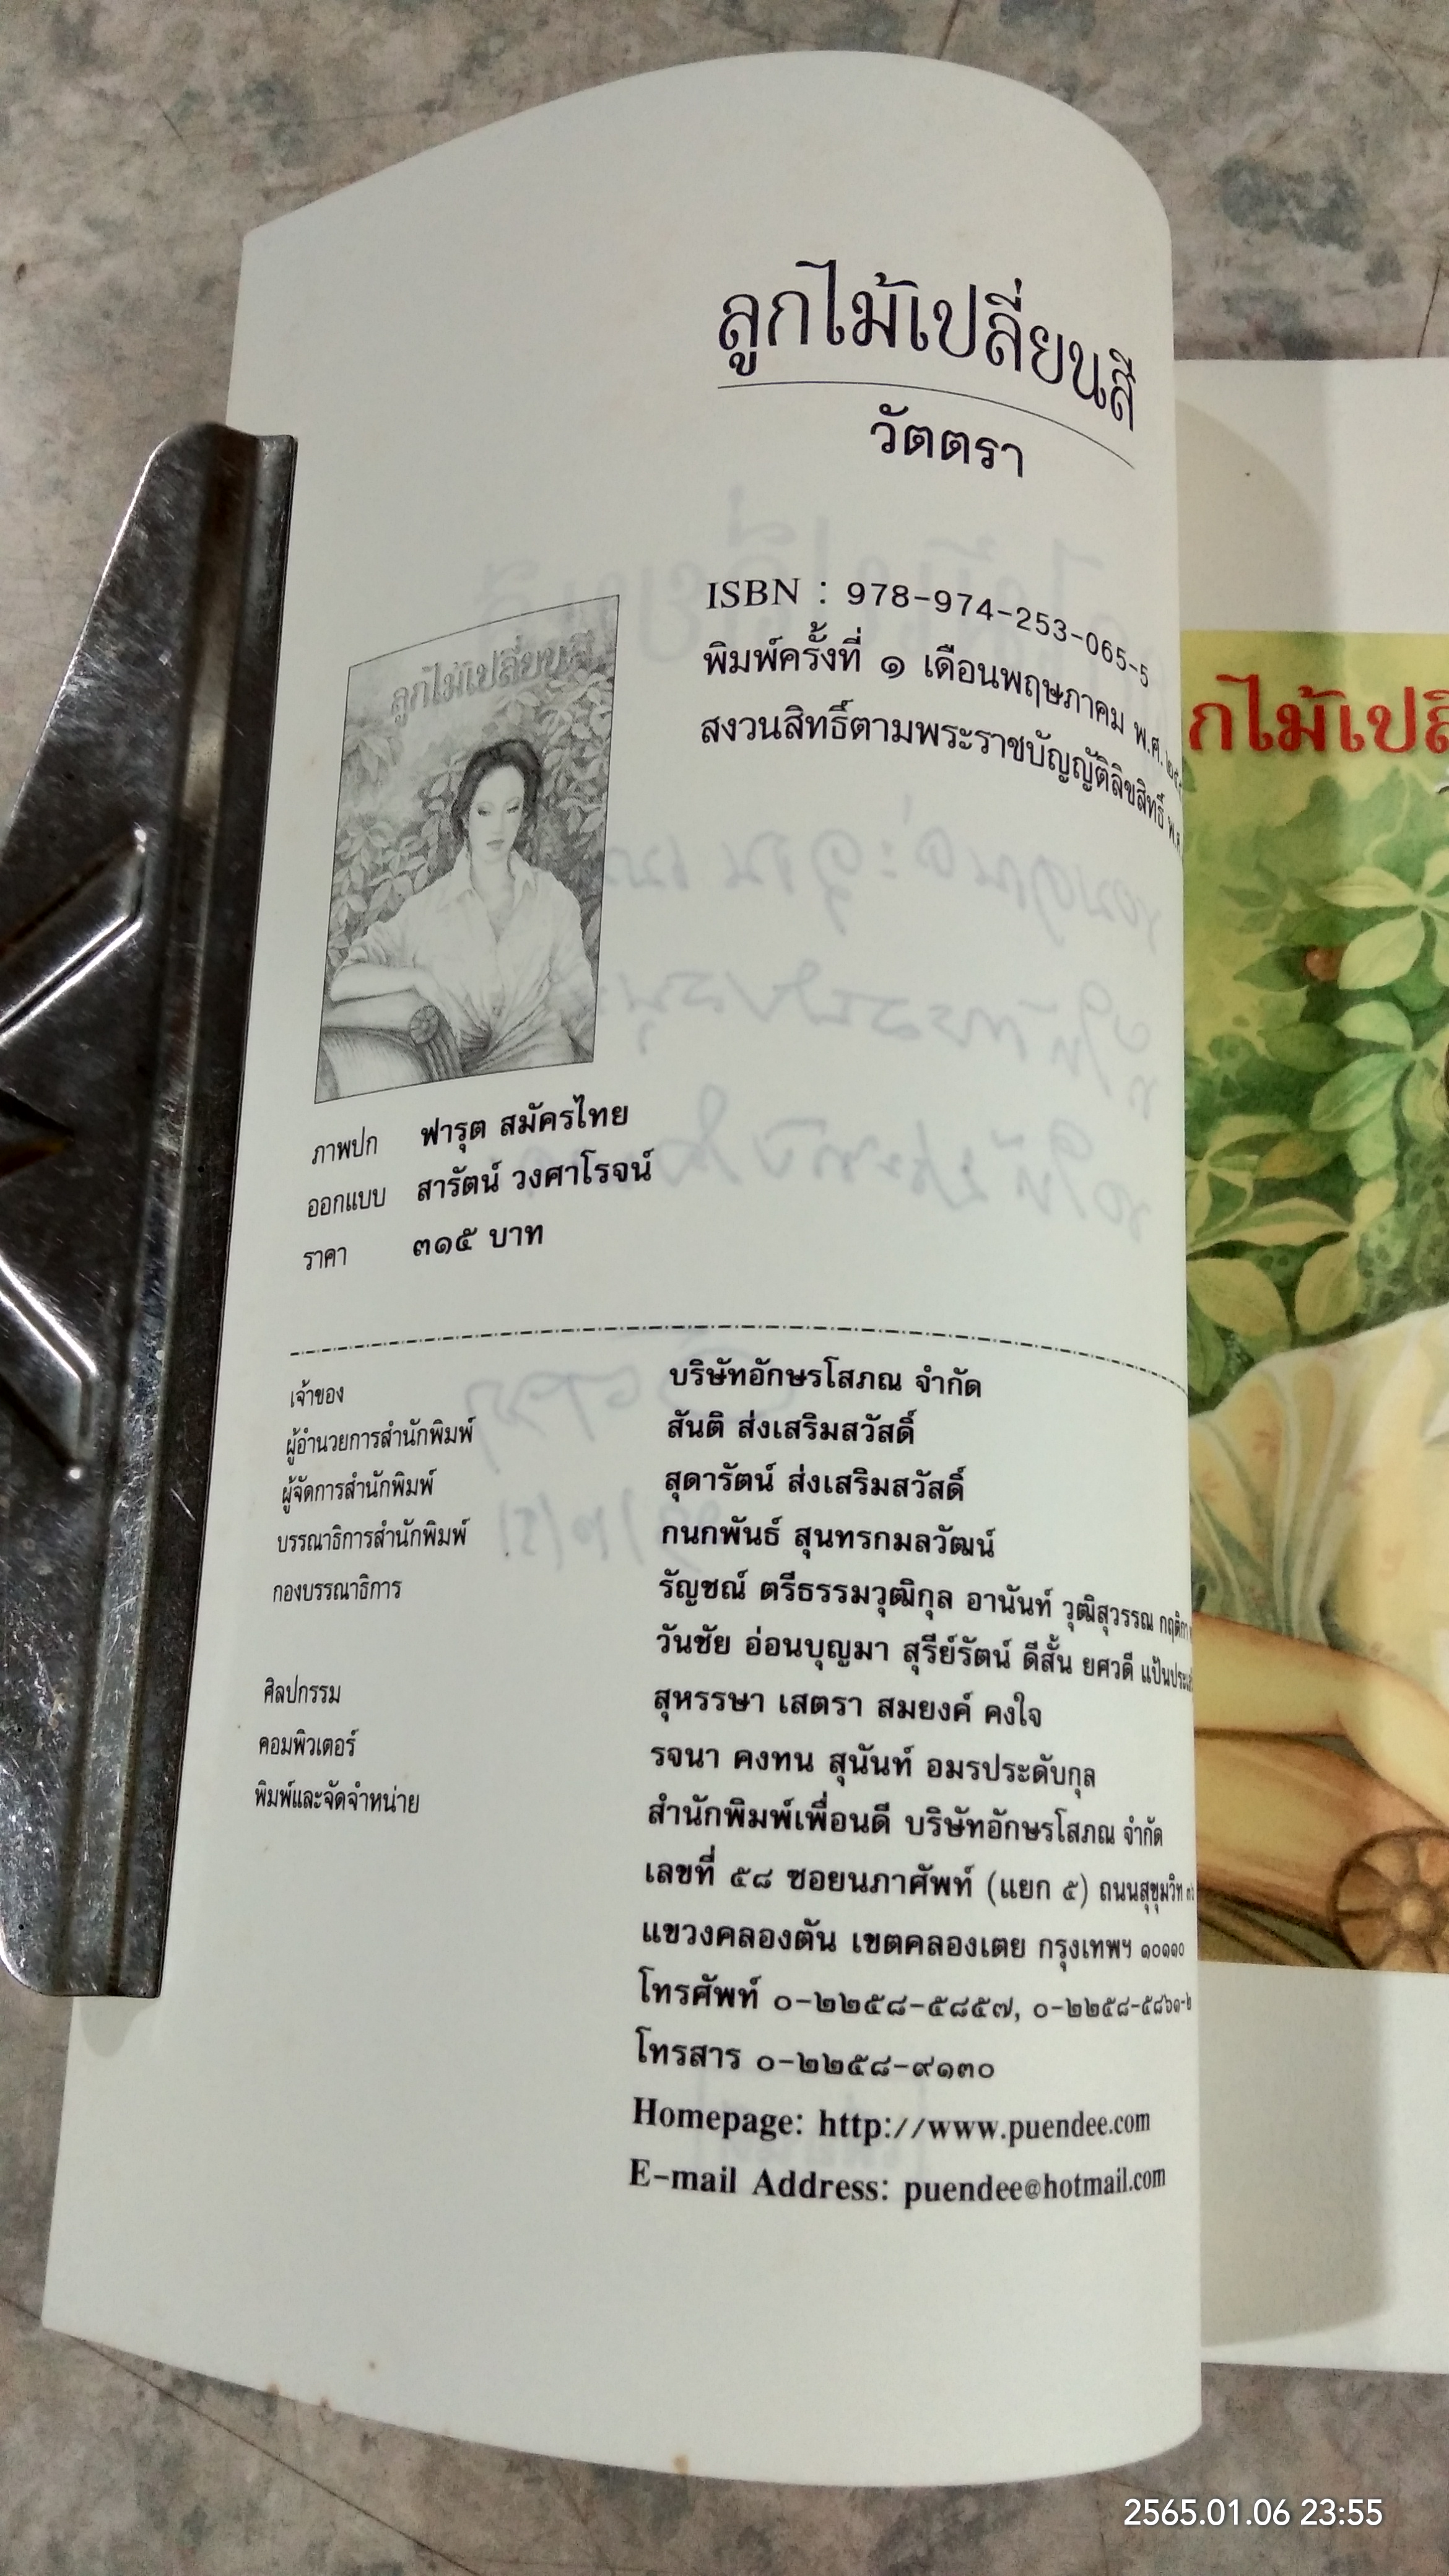 ลูกไม้เปลี่ยนสี
วัตตรา
ISBN : 978-974-253-065-5
พิมพ์ครั้งที่ ๑ เดือนพฤษภาคม พ.ศ.
สงวนสิทธิ์ตามพระราชบัญญัติลิขสิทธิ์
ลูกไม้เปลี่ยนสี
ภาพปก ฟารุต สมัครไทย
ออกแบบ สารัตน์ วงศาโรจน์
ราคา ๓๑๕ บาท
เจ้าของ บริษัทอักษรโสภณ จำกัด
ผู้อำนวยการสำนักพิมพ์ สันติ ส่งเสริมสวัสดิ์
ผู้จัดการสำนักพิมพ์ สุดารัตน์ ส่งเสริมสวัสดิ์
บรรณาธิการสำนักพิมพ์ กนกพันธ์ สุนทรกมลวัฒน์
กองบรรณาธิการ รัญชณ์ ตรีธรรมวุฒิกุล อานันท์ วุฒิสุวรรณ
วันชัย อ่อนบุญมา สุรีย์รัตน์ ดีสั้น ยศวดี
ศิลปกรรม สุหรรษา เสตรา สมยงค์ คงใจ
คอมพิวเตอร์ รจนา คงทน สุนันท์ อมรประดับกุล
พิมพ์และจัดจำหน่าย สำนักพิมพ์เพื่อนดี บริษัทอักษรโสภณ จำกัด
เลขที่ ๕๘ ซอยนภาศัพท์ (แยก ๕) ถนนสุขุมวิท
แขวงคลองตัน เขตคลองเตย กรุงเทพฯ ๑๐๑๑๐
โทรศัพท์ ๐-๒๒๕๘-๕๘๕๗, ๐-๒๒๕๘-๕๘๖๑-๒
โทรสาร ๐-๒๒๕๘-๙๑๓๐
Homepage: http://www.puendee.com
E-mail Address: puendee@hotmail.com
กไม้เปลี
2565.01.06 23:55